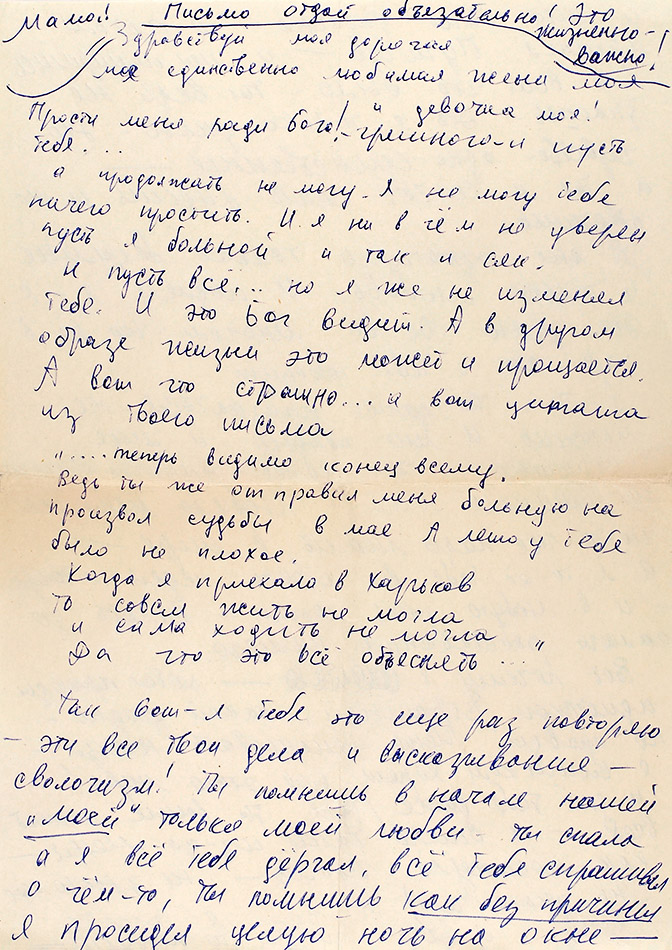 Мама! Письмо отдай объезательно! Это
жизненно-
важно!
"Здравствуй моя дорогая
моя единственно любимая жена моя
и девочка моя!
Прости меня ради Бога!-грешного-и пусть
тебе....
а продолжать не могу. Я не могу тебе
ничего простить. И я ни в чём не уверен
пусть я больной и так и сяк.
и пусть всё... но я же не изменял
тебе. И это Бог видит. А в другом
образе жизни это может и прощается.
А вот что страшно... а вот цитата
из твоего письма
"....теперь видимо конец всему.
Ведь ты же отправил меня больную на
произвол судьбы в мае А лето у тебя
было не плохое.
Когда я приехала в Харьков
то совсем жить не могла
и сама ходить не могла
Да что это всё объеснять ..."
Так вот-я тебе это еще раз повторяю
– эти все твои дела и высказивание —
сволочизм! Ты помнишь в начале нашей
"моей" только моей любви - ты спала
а я всё тебе дёргал, всё тебе спрашивал
о чём-то, ты помнишь как без причины
я просидел целую ночь на окне —